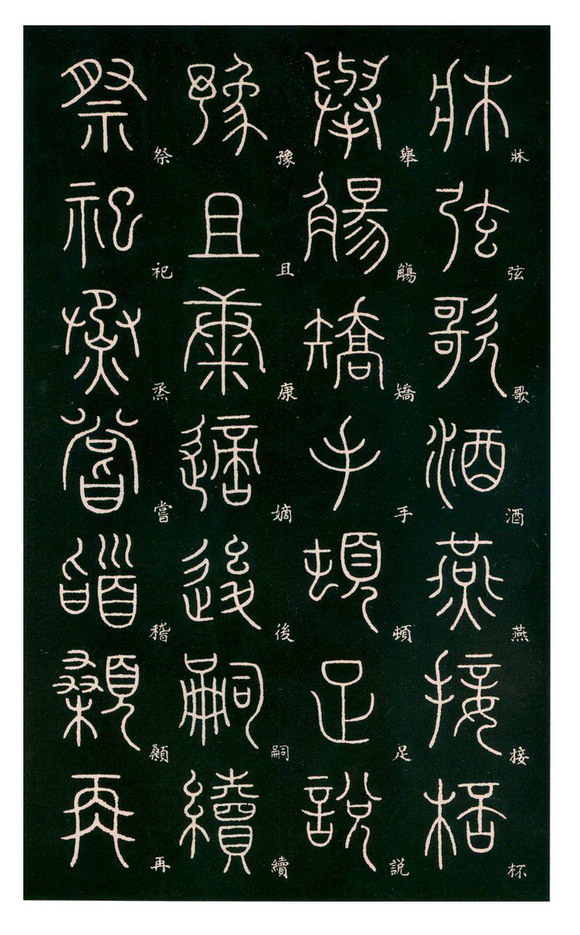 牀弦歌酒燕接杯
舉觴矯手頓足說
豫且康嫡後嗣續
祭祀烝嘗稽顙再